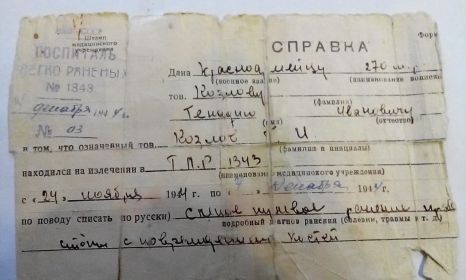 СССР
Штамп
медицинского
учреждения
ГОСПИТАЛЬ
ЛЕГКО РАНЕНЫХ
№ 1343
декабря 1944 г.
№ 03
СПРАВКА
Форм
Дана Красноармейцу 270
(военное звание) (наименование воинской
тов. Козлову
(фамилия)
Генадию Ивановичу
(имя) (отчество)
в том, что означенный тов. Козлов И
(фамилия и инициалы)
находился на излечении в 1343
(наименование медицинского учреждения)
с «24» ноября 1944 г. по « » декабря 194 г.
по поводу (писать по русски) Слепое пулевое ранение
подробный диагноз ранения (болезни, травмы и т. д.)
стопы с повреждением костей